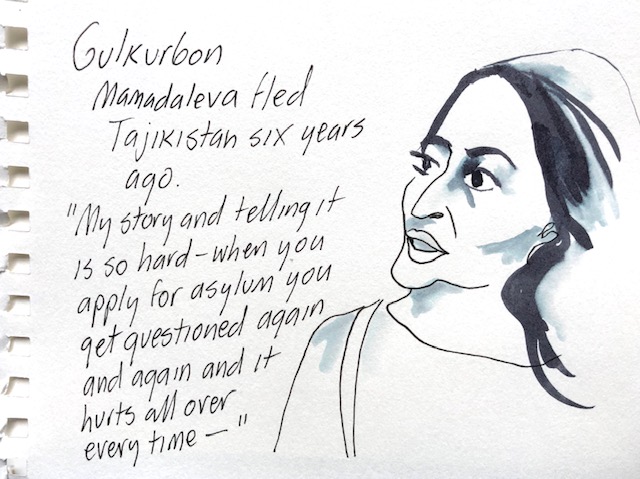 Gulkurbon
Mamadaleva fled
Tajikistan six years
ago.
"My story and telling it
is so hard - when you
apply for asylum you
get questioned again
and again and it
hurts all over
every time — "